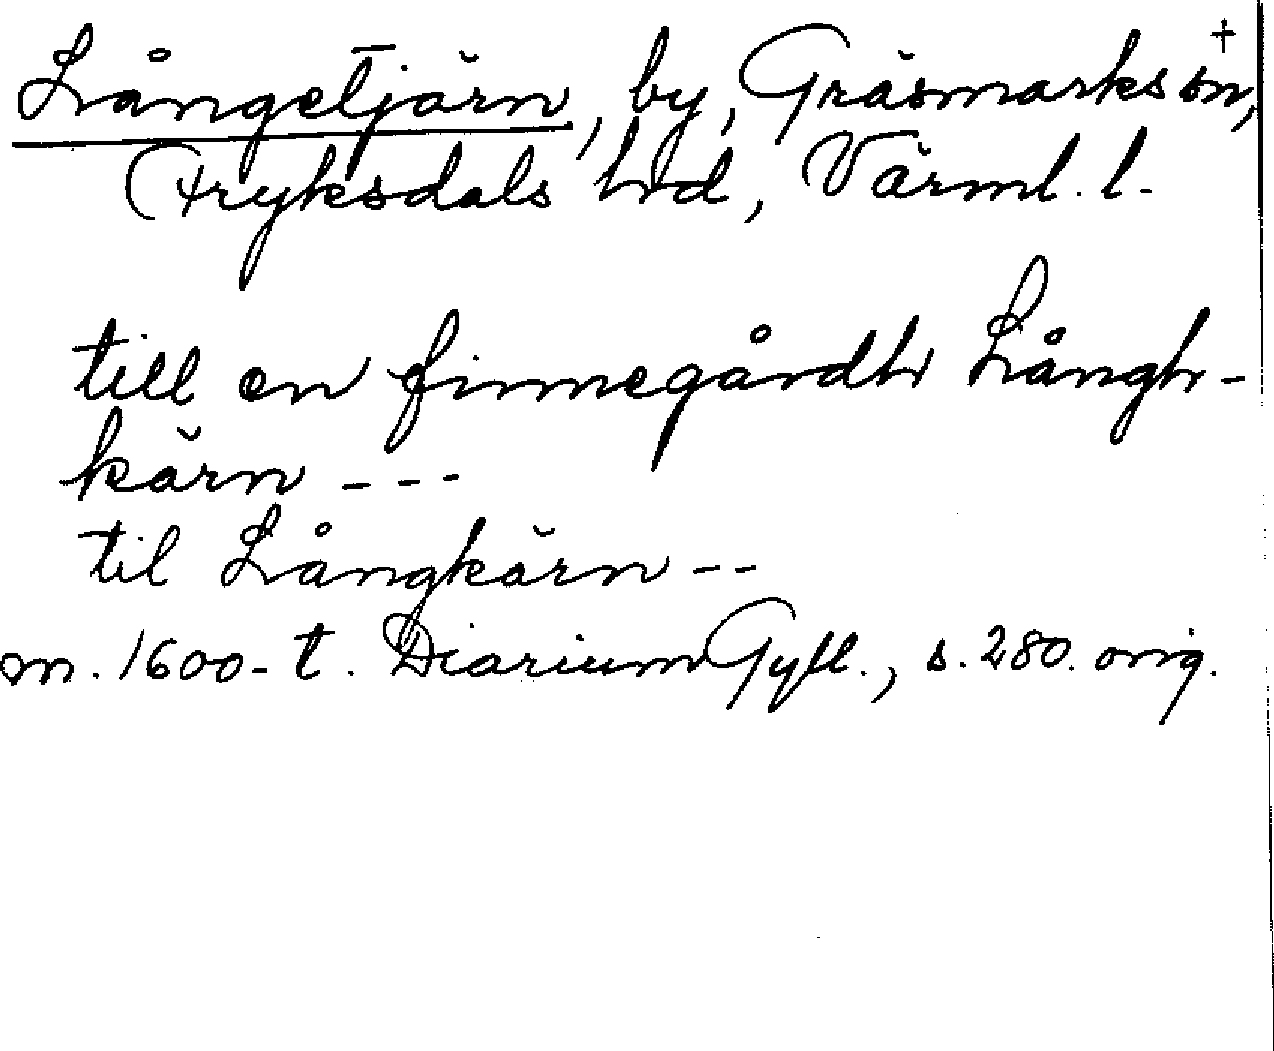 Långetjärn, by, Gräsmarks sn, †
Fryksdals hrd, Värml. l.
till en finnegårdh Långh-
kärn ---
til Långkärn --
m. 1600-t. Diarium Gyll., s. 280. orig.